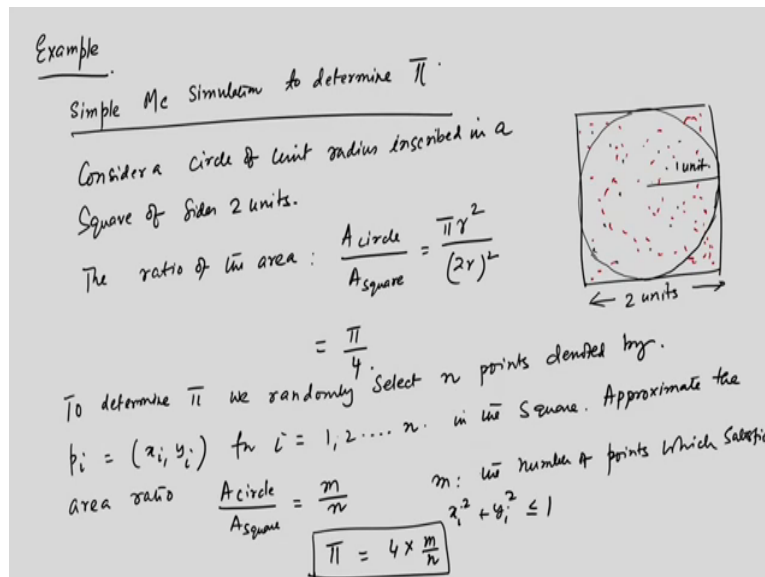 Example.
Simple Mc Simulation to determine π.
Consider a circle of unit radius inscribed in a
Square of Sides 2 units.
The ratio of the area : A circle / A square = πr² / (2r)²
= π / 4.
1 unit.
← 2 units →
To determine π we randomly Select n points denoted by.
pᵢ = (xᵢ, yᵢ) for i = 1, 2 .... n. in the Square. Approximate the
area ratio A circle / A square = m / n m : the number of points which
xᵢ² + yᵢ² ≤ 1
π = 4 × m / n